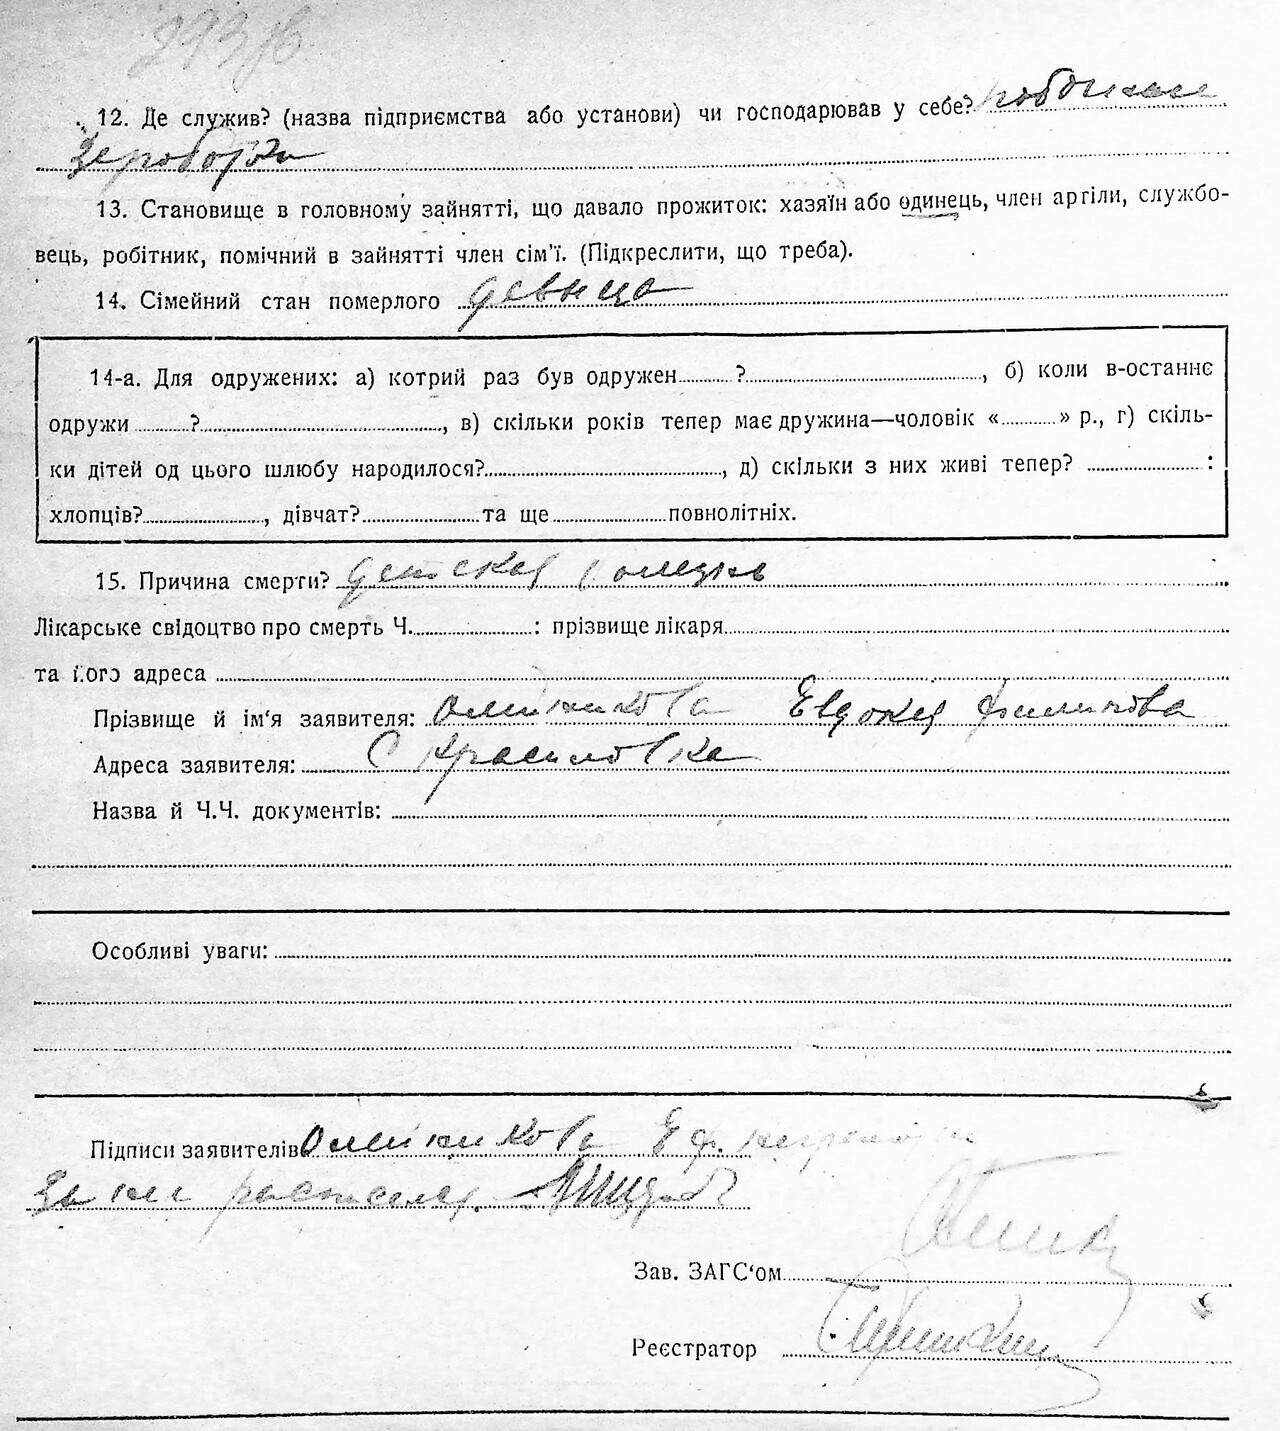 12. Де служив? (назва підприємства або установи) чи господарював у себе?
Зароботки
13. Становище в головному зайнятті, що давало прожиток: хазяїн або одинець, член аргіли, службо-
вець, робітник, помічний в зайнятті член сім'ї. (Підкреслити, що треба).
14. Сімейний стан померлого девица
14-а. Для одружених: а) котрий раз був одружен ?, б) коли в-останнє
одружи ?, в) скільки років тепер має дружина—чоловік « » р., г) скіль-
ки дітей од цього шлюбу народилося?, д) скільки з них живі тепер? :
хлопців?, дівчат? та ще повнолітніх.
15. Причина смерти? детская болезнь
Лікарське свідоцтво про смерть Ч. : прізвище лікаря
та його адреса
Прізвище й ім'я заявителя: Олейникова Евдокия Филипова
Адреса заявителя: С Красиловка
Назва й Ч.Ч. документів:
Особливі уваги:
Підписи заявителів Олейникова Е Ф.
За нее расписался
Зав. ЗАГС'ом
Реєстратор